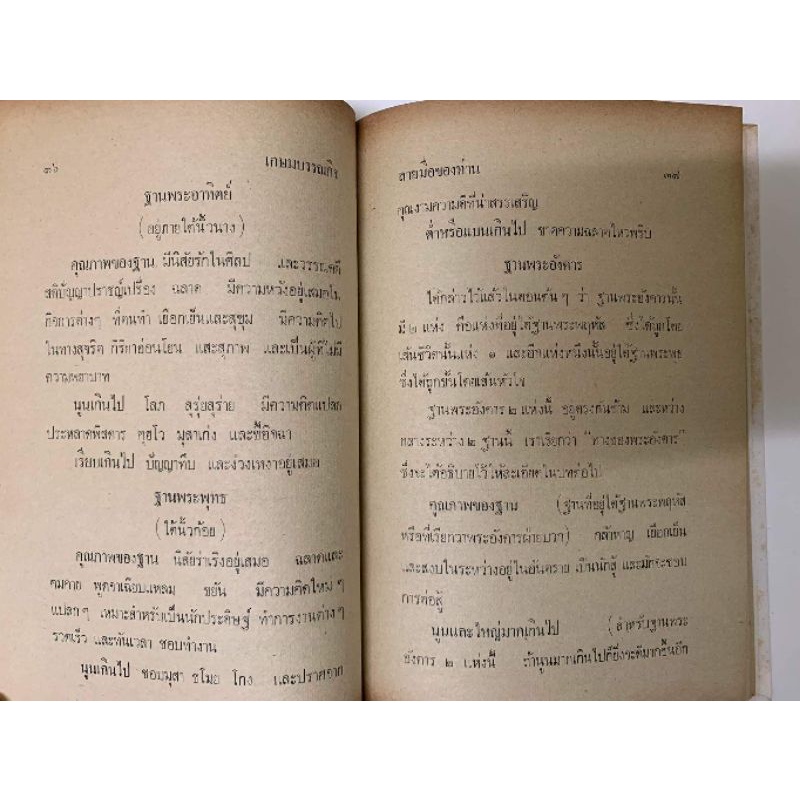 ๓๖
เกษมบรรณกิจ
ฐานพระอาทิตย์
(อยู่ภายใต้นิ้วนาง)
คุณภาพของฐาน มีนิสัยรักในศิลป และวรรณคดี
สติปัญญาปราชญ์เปรื่อง ฉลาด มีความหวังอยู่เสมอใน
กิจการต่างๆ ที่ตนทำ เยือกเย็นและสุขุม มีความคิดไป
ในทางสุจริต กิริยาอ่อนโยน และสุภาพ และเป็นผู้ที่ไม่มี
ความพยาบาท
นูนเกินไป โลภ สุรุ่ยสุร่าย มีความคิดแปลก
ประหลาดพิสดาร คุยโว มุสาเก่ง และขี้อิจฉา
เรียบเกินไป ปัญญาทึบ และง่วงเหงาอยู่เสมอ
ฐานพระพุทธ
(ใต้นิ้วก้อย)
คุณภาพของฐาน นิสัยร่าเริงอยู่เสมอ ฉลาดและ
คมคาย พูดจาเฉียบแหลม ขยัน มีความคิดใหม่ๆ
แปลกๆ เหมาะสำหรับเป็นนักประดิษฐ์ ทำการงานต่างๆ
รวดเร็ว และทันเวลา ชอบทำงาน
นูนเกินไป ชอบมุสา ขโมย โกง และปราศจาก
ลายมือของท่าน
๓๗
คุณงามความดีที่น่าสรรเสริญ
ต่ำหรือแบนเกินไป ขาดความฉลาดไหวพริบ
ฐานพระอังคาร
ได้กล่าวไว้แล้วในตอนต้นๆ ว่า ฐานพระอังคารนั้น
มี ๒ แห่ง คือแห่งที่อยู่ใต้ฐานพระพฤหัส ซึ่งใต้ถูกโดย
เส้นชีวิตนั้นแห่ง ๑ และอีกแห่งหนึ่งนั้นอยู่ใต้ฐานพระพุธ
ซึ่งใต้ถูกขั้นโดยเส้นหัวใจ
ฐานพระอังคาร ๒ แห่งนี้ อยู่ตรงกันข้าม และหว่าง
กลางระหว่าง ๒ ฐานนี้ เราเรียกว่า "ทางของพระอังคาร"
ซึ่งจะได้อธิบายไว้ให้ละเอียดในบทต่อไป
คุณภาพของฐาน (ฐานที่อยู่ใต้ฐานพระพฤหัส
หรือที่เรียกว่าพระอังคารฝ่ายบวก) กล้าหาญ เยือกเย็น
และสงบในระหว่างอยู่ในอันตราย เป็นนักสู้ และมักจะชอบ
การต่อสู้
นูนและใหญ่มากเกินไป (สำหรับฐานพระ
อังคาร ๒ แห่งนี้ ถ้านูนมากเกินไปก็ยิ่งจะดีมากขึ้นอีก